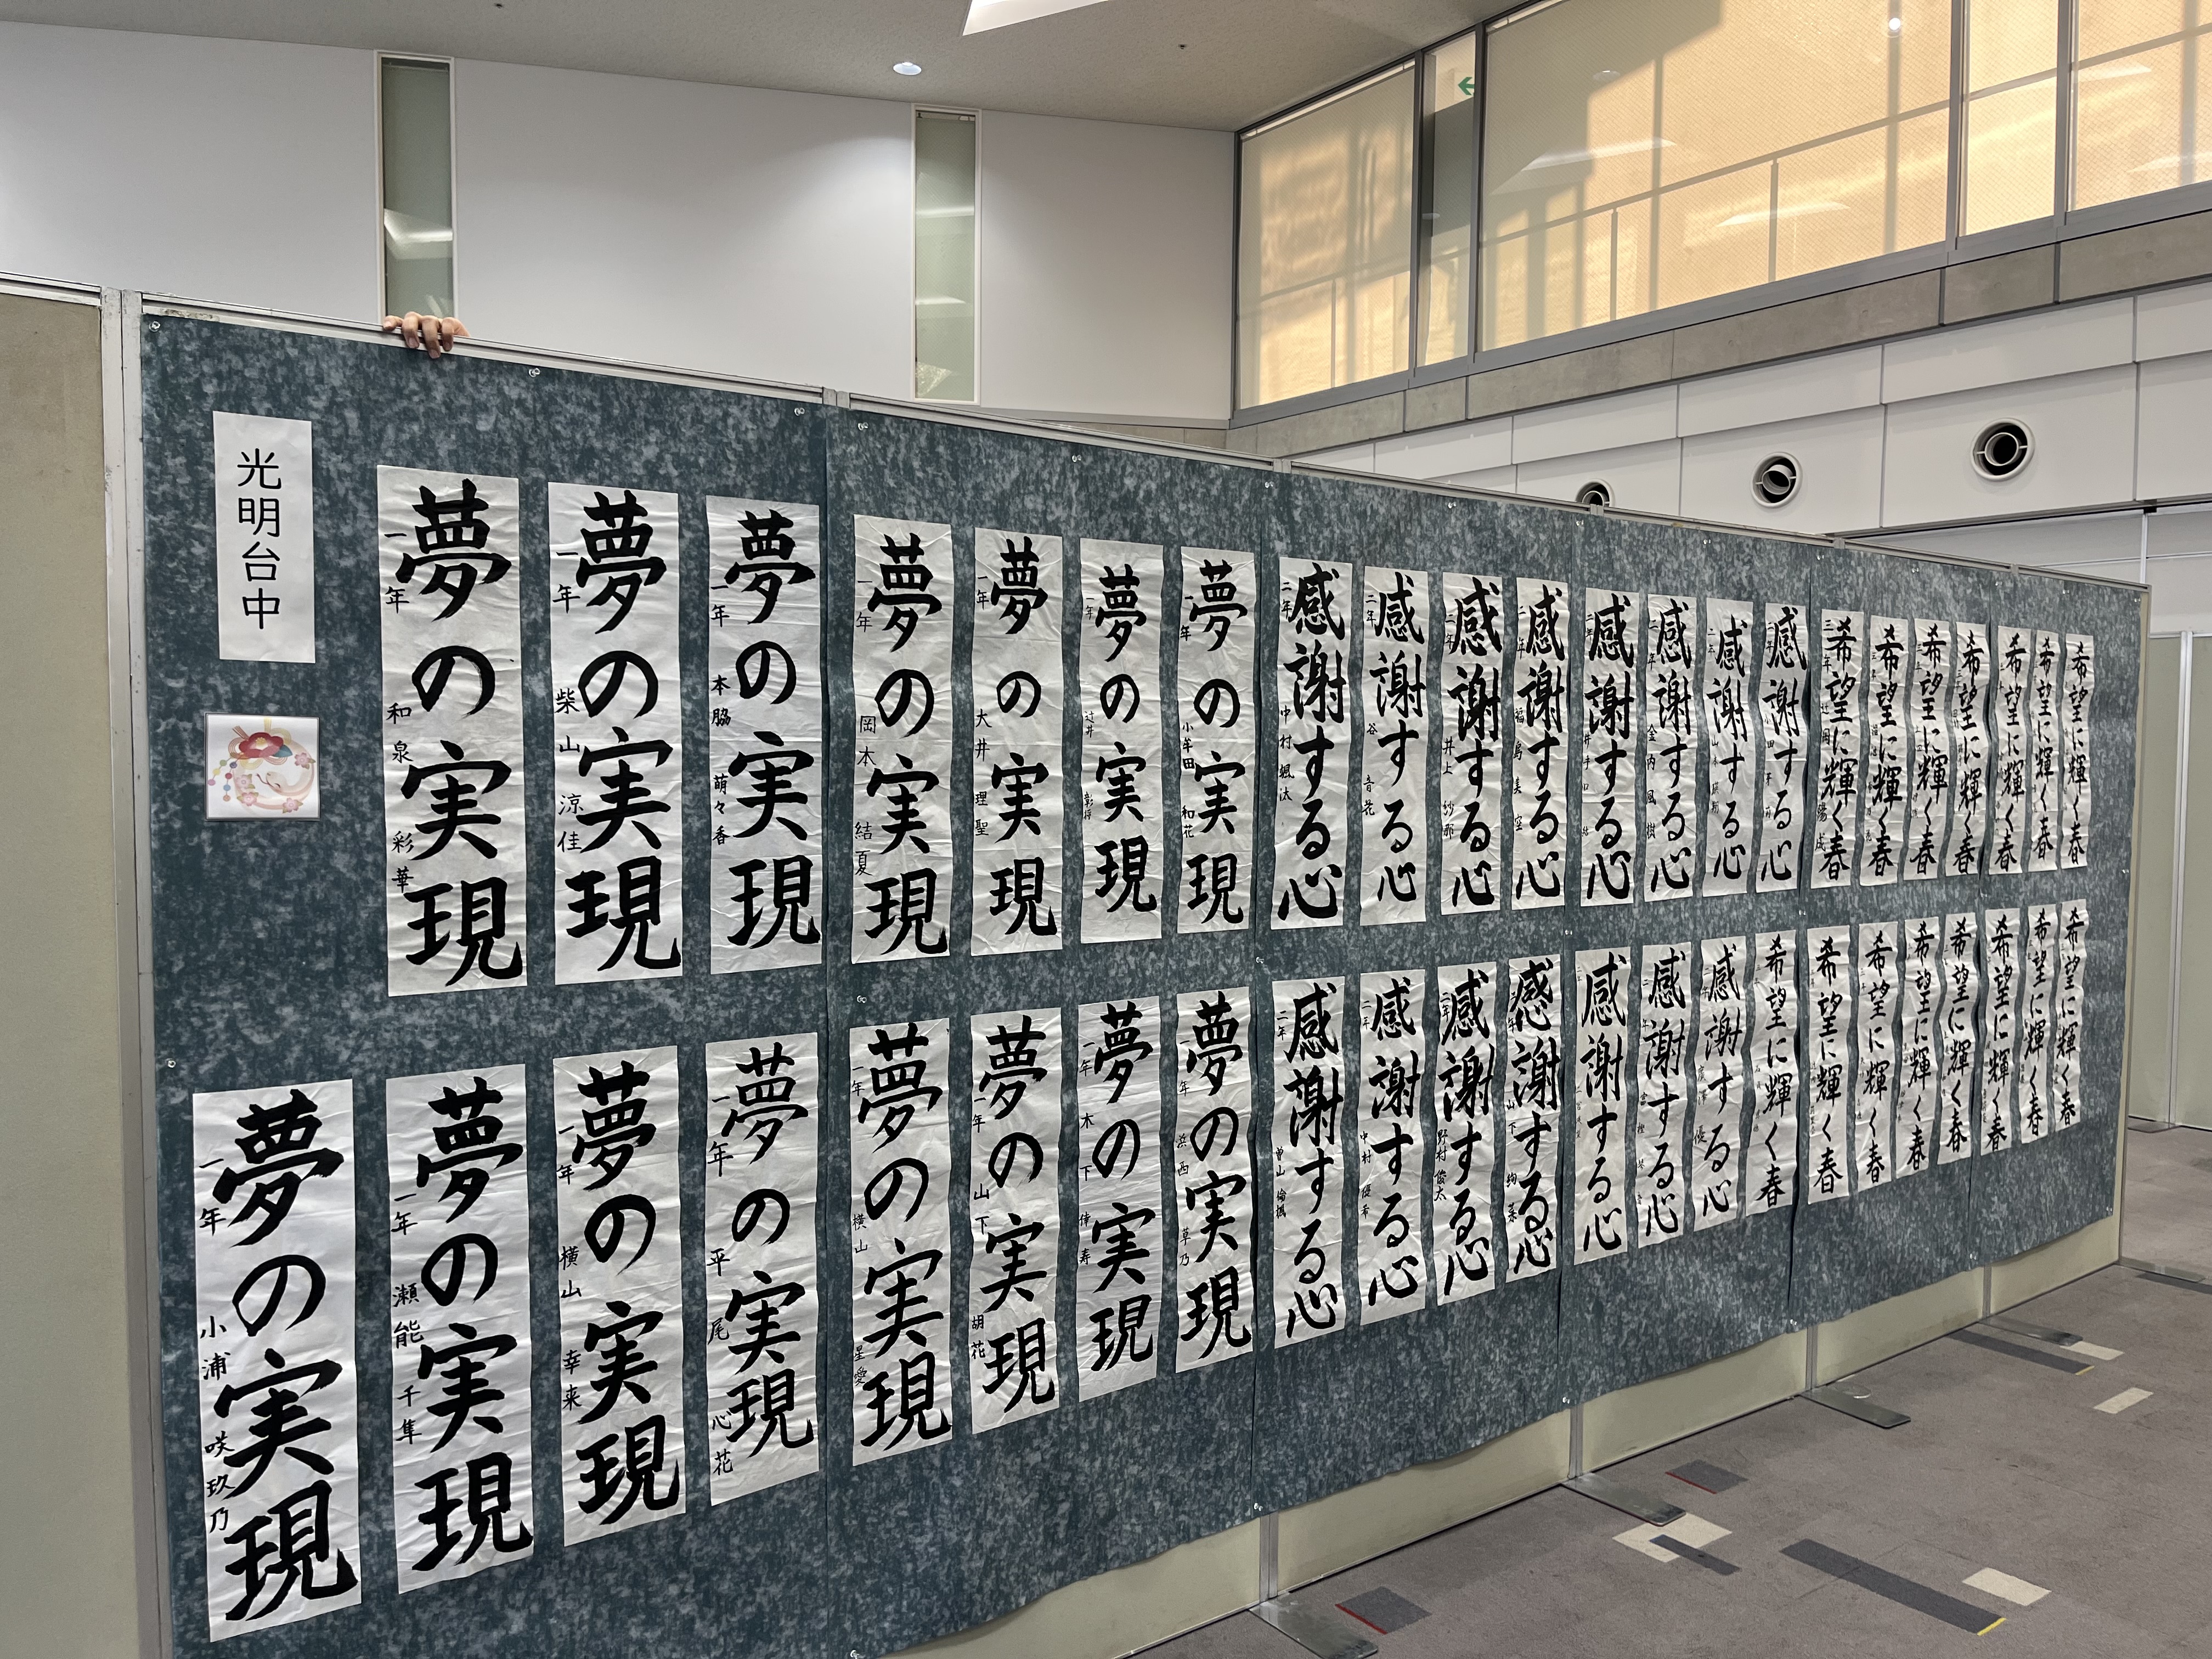 光明台中
夢の実現
一年 和泉 彩華
夢の実現
一年 柴山 涼佳
夢の実現
一年 本脇 萌々香
夢の実現
一年 岡本 結夏
夢の実現
一年 大井 理聖
夢の実現
一年 辻井 彰将
夢の実現
一年 小牟田 和花
感謝する心
二年 中村 颯汰
感謝する心
二年 谷 音花
感謝する心
二年 井上 紗那
感謝する心
二年 福島 美空
感謝する心
二年
感謝する心
二年 金内 風樹
感謝する心
二年
感謝する心
二年
希望に輝く春
三年
希望に輝く春
希望に輝く春
希望に輝く春
希望に輝く春
希望に輝く春
希望に輝く春
夢の実現
一年 小浦 咲玖乃
夢の実現
一年 瀬能 千隼
夢の実現
一年 横山 幸来
夢の実現
一年 平尾 心花
夢の実現
一年 横山 星愛
夢の実現
一年 山下 胡花
夢の実現
一年 木下 倖寿
夢の実現
一年 浜西 草乃
感謝する心
二年 曽山 倫楓
感謝する心
二年 中村 優希
感謝する心
二年 野村 俊太
感謝する心
二年 山下 絢菜
感謝する心
二年
感謝する心
二年
感謝する心
希望に輝く春
希望に輝く春
希望に輝く春
希望に輝く春
希望に輝く春
希望に輝く春
希望に輝く春
希望に輝く春